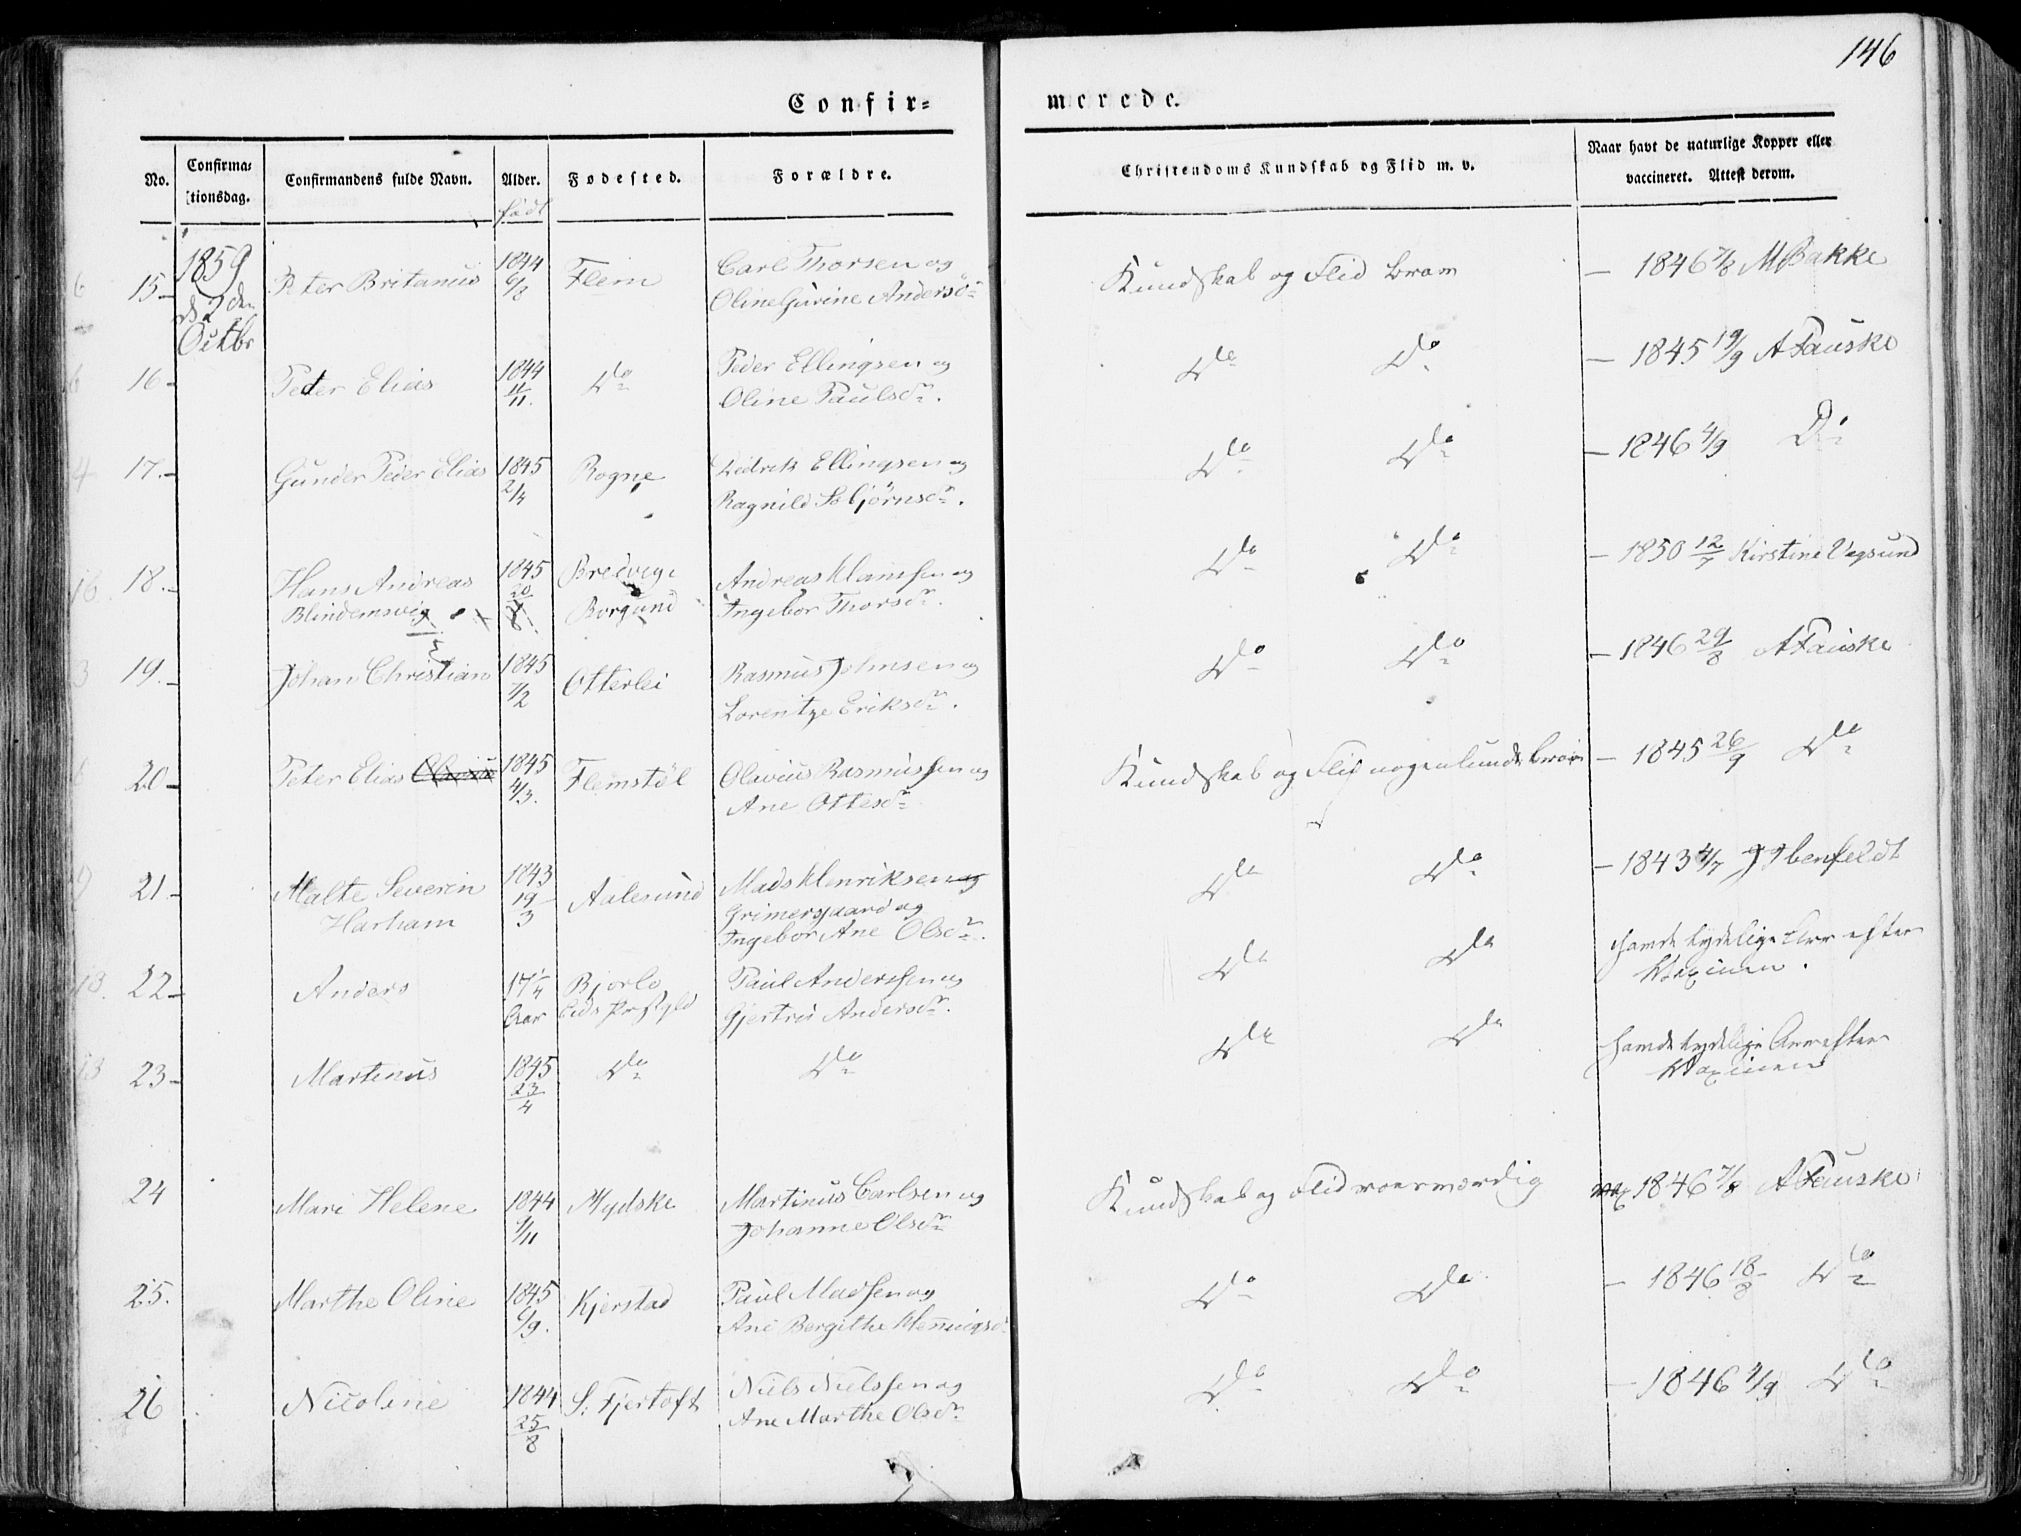 146
Confir= merede.
No. Confirma= tionsdag. Confirmandens fulde Navn. Alder. Fødested. Forældre. Christendoms Kundskab og Flid m. v. Naar havt de naturlige Kopper eller
vaccineret. Attest derom.
født
6 15- 1859 Peter Britanius 1844 Flem Carl Thorsen og Kundskab og Flid bram — 1846 7/8 M Bakke
d 2den 6/8 Oline Gurine Andersdr
Octbr
6 16- Peter Elias 1844 Do Peder Ellingsen og Do Do — 1845 19/9 A Fauske
11/11. Oline Paulsdr.
4 17.- Gunder Peder Elias 1845 Rogne Didrik Ellingsen og Do Do — 1846 4/9 Do
2/4 Ragnild Sebjørnsdr.
16 18.- Hans Andreas 1845 Bredvege Andreas Hansen og Do Do — 1850 12/7 Kirstine Vegsund
Blindemsvig 20/8. Borgund Ingebor Thorsdr.
3 19.- Johan Christian 1845 Otterlei Rasmus Johnsen og Do Do — 1846 29/8 A Fauske
7/2 Lorentze Eriksdr.
20- Peter Elias 1845 Flemstøl Olivius Rasmussen og Kundskab og Flid nogenlunde bram — 1845 26/9 Do
4/3. Ane Ottesdr
21- Malte Severin 1843 Aalesund Mads Henriksen og Do Do — 1843 4/7 J Ibenfeldt
Harham 19/3 Grimersgaard og
Ingebor Ane Olsdr.
13. 22- Anders 17 1/4 Bjorlo Paul Anderssen og Do Do havde tydelige Arr efter
Aar Eids Præstgld Gjertru Andersdr. Vaxinen.
13 23- Martinus 1845 Do Do Do Do havde tydelige Arr efter
23/4 Vaxinen
24 Mari Helene 1844 Mydske Martinus Carlsen og Kundskab og Flid roesværdig vax 1846 7/8 A Fauske
1/11 Johanne Olsdr
25. Marthe Oline 1845 Kjerstad Paul Madsen og Do Do — 1846 18/8 Do
6/9. Ane Bergithe Henningsd
26 Nicoline 1844 S. Fjertoft Niels Nielssen og Do Do — 1846 4/9 Do
25/8 Ane Marthe Olsdr